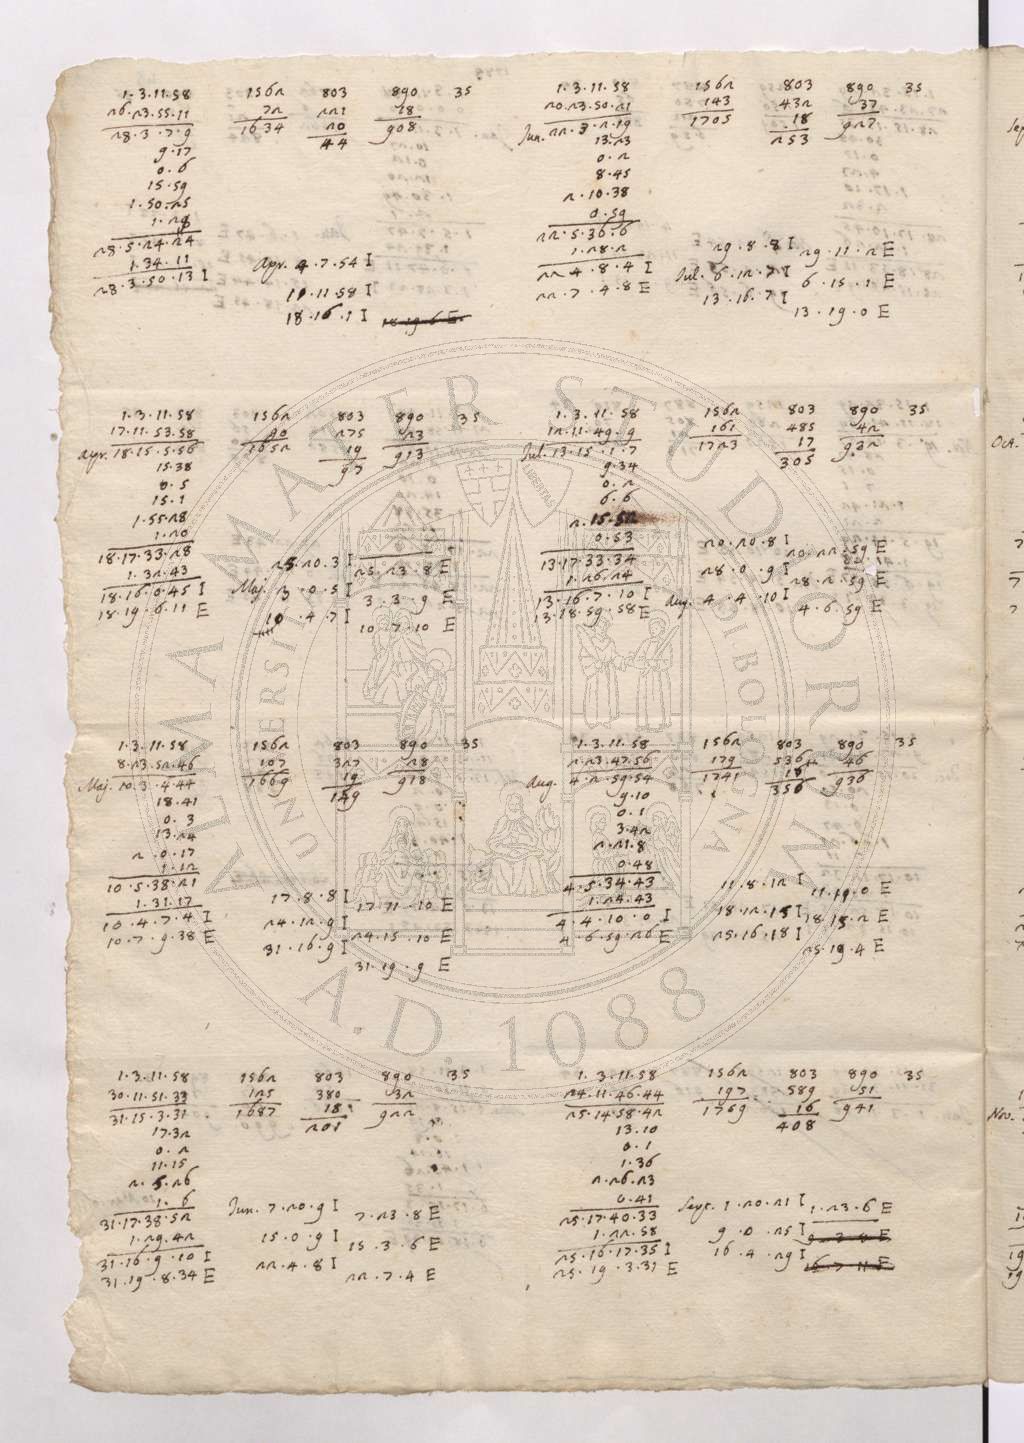 1.3.11.58 1562 803 890 35
26.23.55.11 72 221 18
28.3.7.9 1634 20 908
9.17 44
0.6
15.59
1.50.25
1.28
28.5.24.24
1.34.11
28.3.50.13 I
Apr. 4.7.54 I
11.11.58 I
18.16.1 I 18.19.6 E
1.3.11.58 1562 803 890 35
17.11.53.58 90 275 23
Apr. 18.15.5.56 1652 19 913
15.38 97
0.5
15.1
1.55.28
1.20
18.17.33.28
1.32.43
18.16.0.45 I
18.19.6.11 E
25.20.3 I 25.23.8 E
Maj. 3.0.5 I 3.3.9 E
10.4.7 I 10.7.10 E
1.3.11.58 1562 803 890 35
8.23.52.46 107 327 28
Maj. 10.3.4.44 1669 19 918
18.41 149
0.3
13.24
2.0.17
1.12
10.5.38.21
1.31.17
10.4.7.4 I
10.7.9.38 E
17.8.8 I 17.11.10 E
24.12.9 I 24.15.10 E
31.16.9 I 31.19.9 E
1.3.11.58 1562 803 890 35
30.11.51.33 125 380 32
31.15.3.31 1687 18 922
17.32 201
0.2
11.15
2.5.26
1.6
31.17.38.52
1.29.42
31.16.9.10 I
31.19.8.34 E
Jun. 7.20.9 I 7.23.8 E
15.0.9 I 15.3.6 E
22.4.8 I 22.7.4 E
1.3.11.58 1562 803 890 35
20.23.50.21 143 432 37
Jun. 22.3.2.19 1705 18 927
13.23 253
0.2
8.45
2.10.38
0.59
22.5.36.6
1.28.2
22.4.8.4 I
22.7.4.8 E
29.8.8 I 29.11.2 E
Jul. 6.12.7 I 6.15.1 E
13.16.7 I 13.19.0 E
1.3.11.58 1562 803 890 35
12.11.49.9 161 485 42
Jul. 13.15.1.7 1723 17 932
9.34 305
0.2
6.6
2.15.52
0.53
13.17.33.34
1.26.24
13.16.7.10 I
13.18.59.58 E
20.20.8 I 20.22.59 E
28.0.9 I 28.2.59 E
Aug. 4.4.10 I 4.6.59 E
1.3.11.58 1562 803 890 35
2.23.47.56 179 536 46
Aug. 4.2.59.54 1741 18 936
9.10 356
0.1
3.42
2.21.8
0.48
4.5.34.43
1.24.43
4.4.10.0 I
4.6.59.26 E
11.8.12 I 11.11.0 E
18.12.15 I 18.15.2 E
25.16.18 I 25.19.4 E
1.3.11.58 1562 803 890 35
24.11.46.44 197 589 51
25.14.58.42 1769 16 941
13.10 408
0.1
1.36
2.26.23
0.41
25.17.40.33
1.22.58
25.16.17.35 I
25.19.3.31 E
Sept. 1.20.21 I 1.23.6 E
9.0.25 I 9.3.8 E
16.4.29 I 16.7.11 E
Oct.
Nov.
ALMA MATER STUDIORUM
A.D. 1088